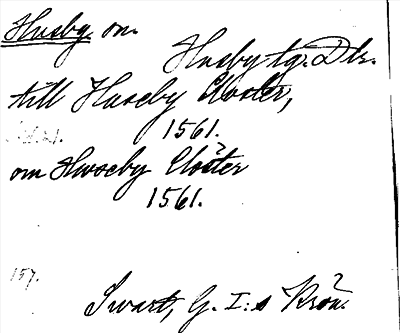 Husby, on.
Husby tg. Dlr.
till Huseby Closter,
1561.
om Hwseby Closter
1561.
157.
Swart, G. I:s Krön.